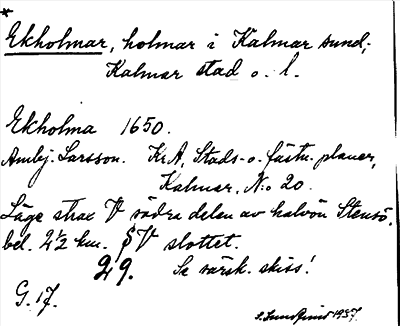 *
Ekholmar, holmar i Kalmar sund,
Kalmar stad o. l.
Ekholma 1650.
Ambj. Larsson. KrA, Stads- o. fästn. planer,
Kalmar. N:o 20.
Läge strax V södra delen av halvön Stensö,
bel. 2½ km. SV slottet.
29. Se särsk. skiss!
G. 17.
1937.